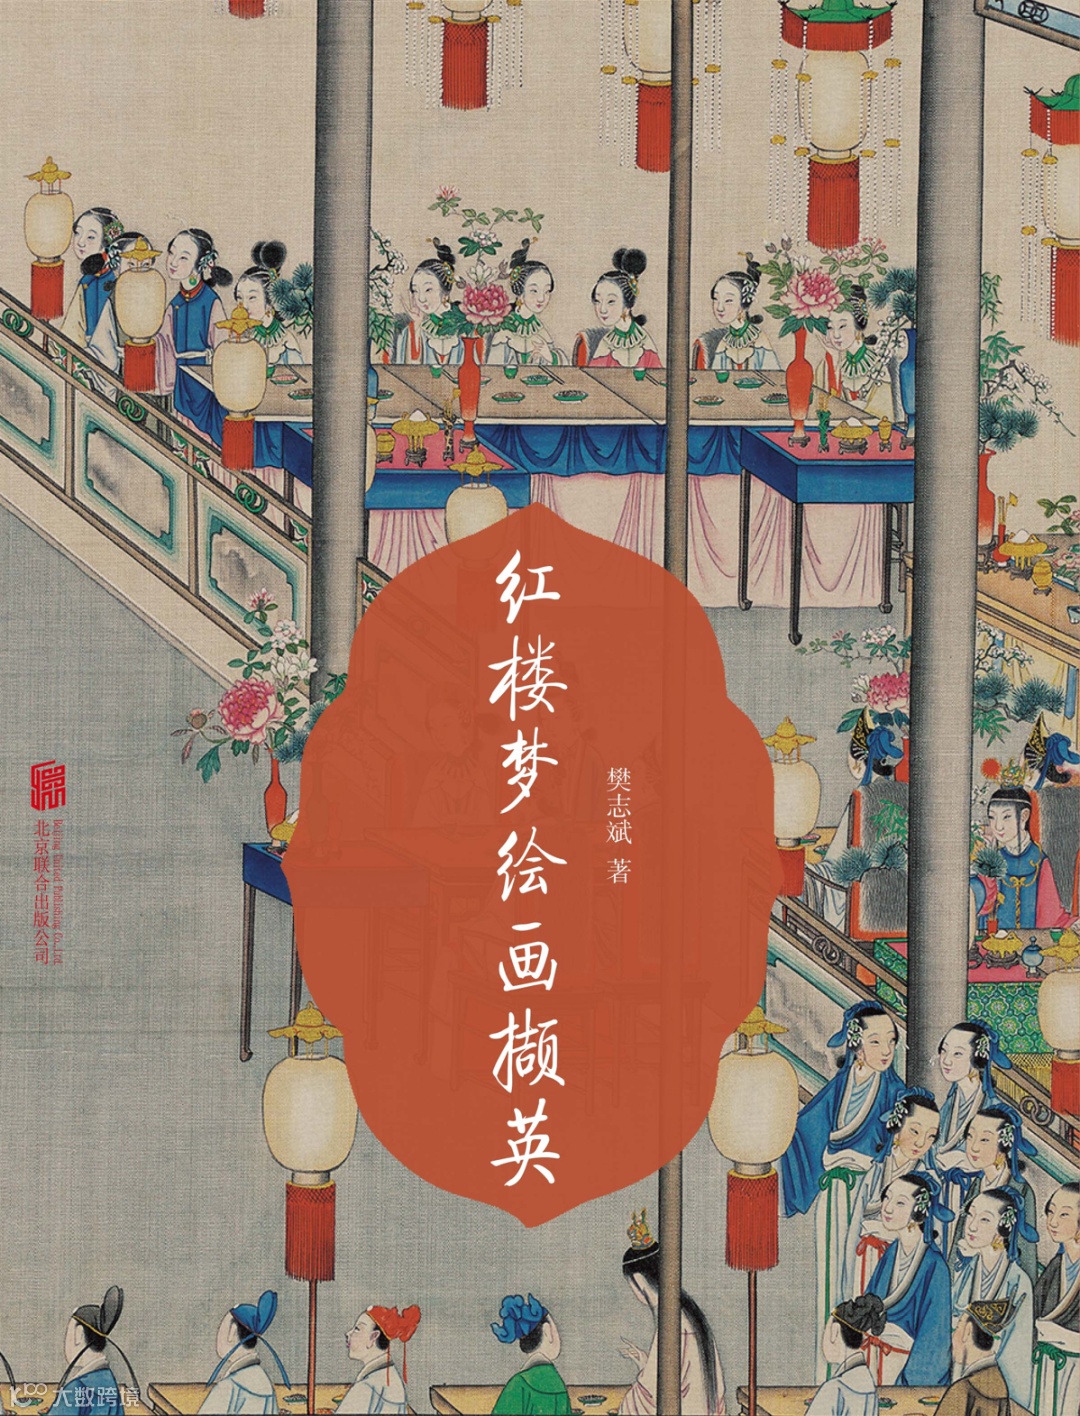 红楼梦绘画撷英
樊志斌 著
北京联合出版公司
Beijing United Publishing Co.,Ltd.
大数跨境